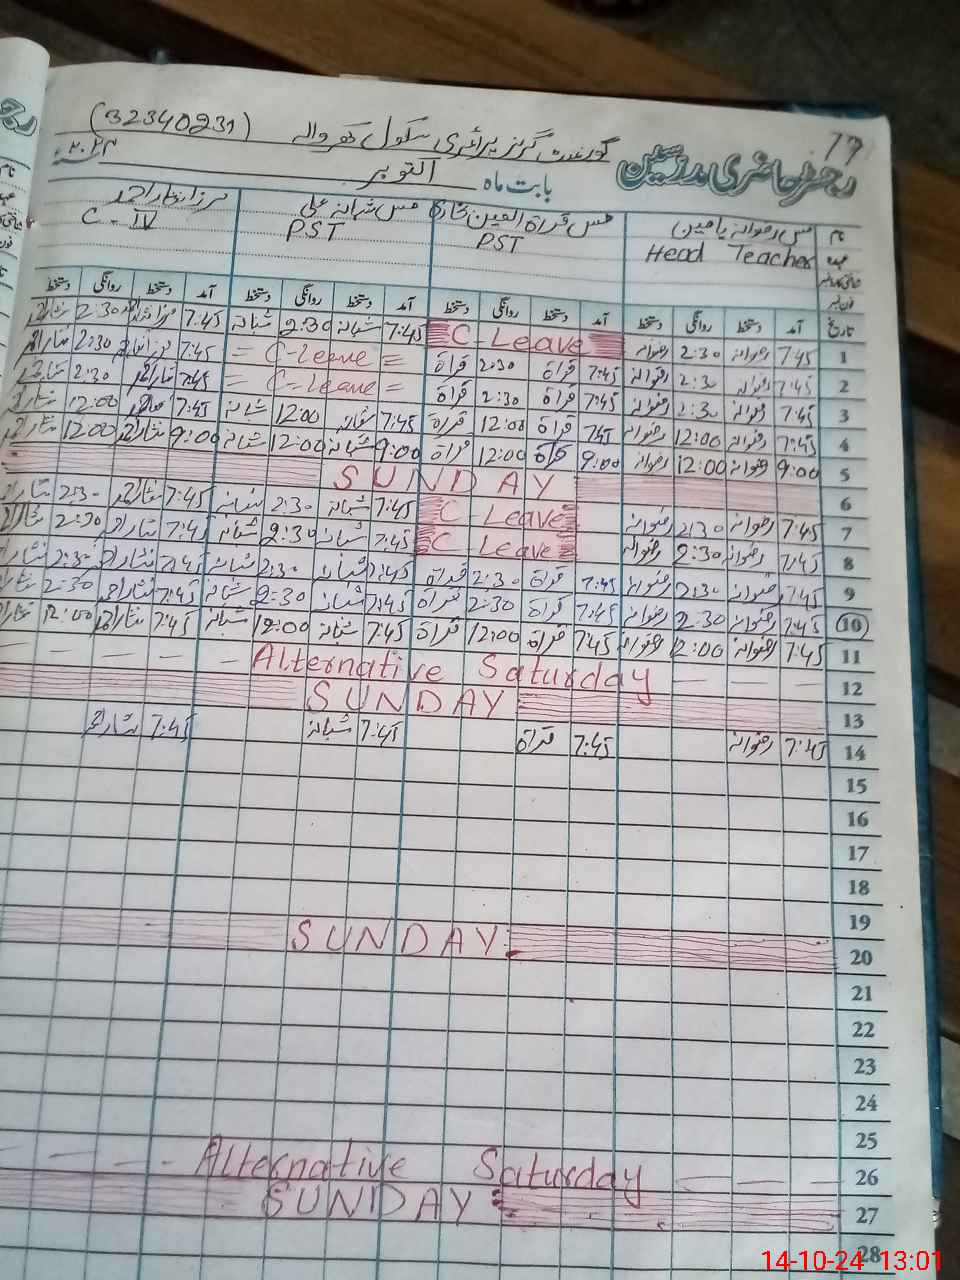 77
رجسٹر حاضری مدرسین
گورنمنٹ گرلز پرائمری سکول کھروالہ (32340231)
بابت ماہ اکتوبر ۲۰۲۴
نام مس رضوانہ یاسمین مس قراۃ العین بخاری مس شبانہ علی مرزا نثار احمد
عہدہ Head Teacher PST PST C-IV
تاریخ آمد دستخط روانگی دستخط آمد دستخط روانگی دستخط آمد دستخط روانگی دستخط آمد دستخط روانگی دستخط
1 7:45 رضوانہ 2:30 رضوانہ C-Leave 7:45 شبانہ 2:30 شبانہ 7:45 2:30
2 7:45 رضوانہ 2:30 رضوانہ 7:45 قراۃ 2:30 قراۃ = C-Leave = 7:45 2:30
3 7:45 رضوانہ 2:30 رضوانہ 7:45 قراۃ 2:30 قراۃ = C-Leave = 7:45 نثار احمد 2:30
4 7:45 رضوانہ 12:00 رضوانہ 7:45 قراۃ 12:00 قراۃ 7:45 شبانہ 12:00 شبانہ 7:45 12:00
5 9:00 رضوانہ 12:00 رضوانہ 9:00 قراۃ 12:00 قراۃ 9:00 شبانہ 12:00 شبانہ 9:00 نثار احمد 12:00 نثار احمد
6 SUNDAY
7 7:45 رضوانہ 2:30 رضوانہ C Leave 7:45 شبانہ 2:30 شبانہ 7:45 نثار احمد 2:30
8 7:45 رضوانہ 2:30 رضوانہ C Leave 7:45 شبانہ 2:30 شبانہ 7:45 نثار احمد 2:30
9 7:45 رضوانہ 2:30 رضوانہ 7:45 قراۃ 2:30 قراۃ 7:45 شبانہ 2:30 شبانہ 7:45 نثار احمد 2:30
10 7:45 رضوانہ 2:30 رضوانہ 7:45 قراۃ 2:30 قراۃ 7:45 شبانہ 2:30 شبانہ 7:45 نثار احمد 2:30
11 7:45 رضوانہ 12:00 رضوانہ 7:45 قراۃ 12:00 قراۃ 7:45 شبانہ 12:00 شبانہ 7:45 نثار احمد 12:00
12 Alternative Saturday
13 SUNDAY
14 7:45 رضوانہ 7:45 قراۃ 7:45 شبانہ 7:45 نثار احمد
15
16
17
18
19
20 SUNDAY
21
22
23
24
25
26 Alternative Saturday
27 SUNDAY
28
14-10-24 13:01